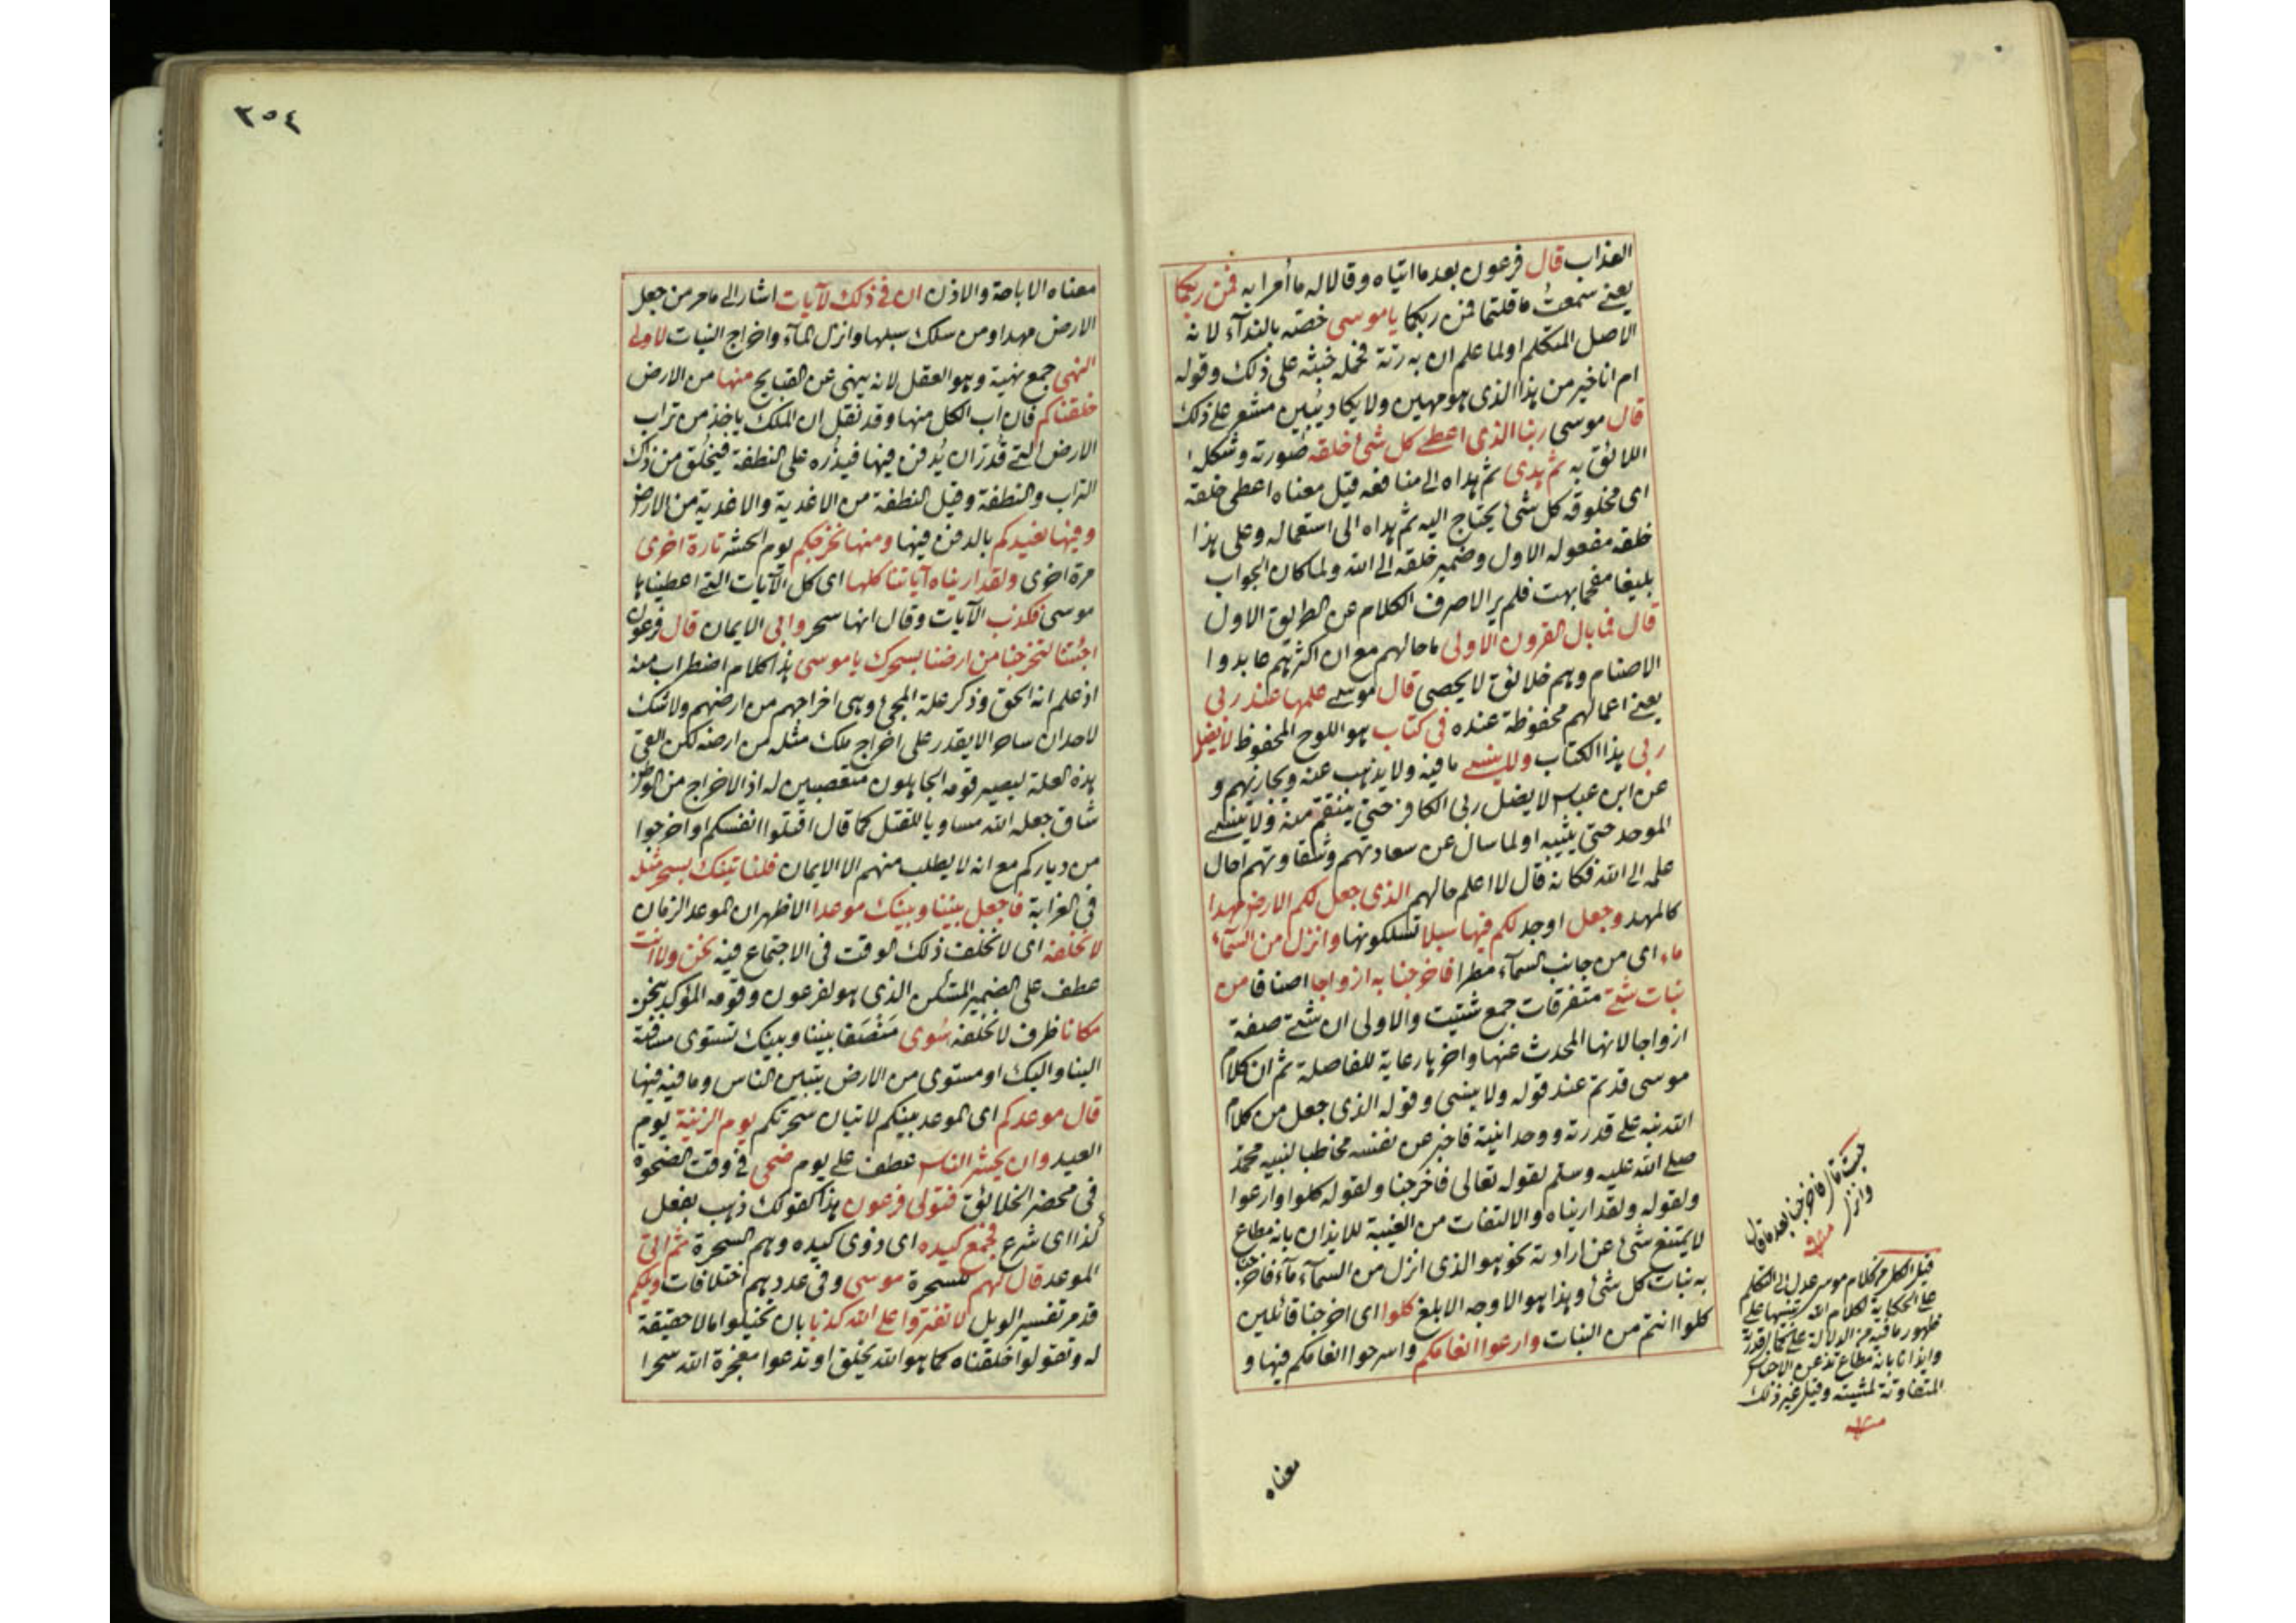 العذاب قال فرعون بعد ما اتياه وقالا له ما أمرا به فمن ربكما
يعنے سمعتُ ما قلتما فمن ربكما ياموسى خصّه بالندآء لانه
الاصل المتكلم او لما علم ان به رتة فحمله خبثه على ذلك وقوله
ام انا خير من هذا الذى هو مهين ولا يكاد يبين مشعر علے ذلك
قال موسى ربنا الذى اعطے كل شئ خلقه صورته وشكله
اللائق به ثم هدى ثم هداه الے منافعه قيل معناه اعطى خلقه
اى مخلوقه كل شئ يحتاج اليه ثم هداه الى استعماله وعلى هذا
خلقه مفعوله الاول وضمير خلقه الے الله ولما كان الجواب
بليغا مفحما بهت فلم ير الا صرف الكلام عن الطريق الاول
قال فما بال القرون الاولى ما حالهم مع ان اكثرهم عابدوا
الاصنام وهم خلائق لا يحصى قال موسے علمها عند ربى
يعنے اعمالهم محفوظة عنده فى كتاب هو اللوح المحفوظ لا يضل
ربى هذا الكتاب ولا ينسے ما فيه ولا يذهب عنه ويجازيهم و
عن ابن عباس لا يضل ربى الكافر حتى ينتقم منه ولا ينسے
الموحد حتى يثيبه او لما سال عن سعادتهم وشقاوتهم احال
علمه الے الله فكانه قال لا اعلم حالهم الذى جعل لكم الارض مهدا
كالمهد وجعل اوجد لكم فيها سبلا تسلكونها وانزل من السمآء
ماء اى من جانب السمآء مطرا فاخرجنا به ازواجا اصنافا من
نبات شتے متفرقات جمع شتيت والاولى ان شتے صفة
ازواجا لانها المحدث عنها واخرها رعاية للفاصلة ثم ان كلام
موسى قد تم عند قوله ولا ينسى وقوله الذى جعل من كلام
الله نبه علے قدرته ووحدانيته فاخبر عن نفسه مخاطبا لنبيه محمد
صلے الله عليه وسلم لقوله تعالى فاخرجنا ولقوله كلوا وارعوا
ولقوله ولقد اريناه والالتفات من الغيبة للايذان بانه مطاع
لا يمتنع شئ عن ارادته نحو هو الذى انزل من السمآء مآء فاخرجنا
به نبات كل شئ وهذا هو الاوجه الابلغ كلوا اى اخرجنا قائلين
كلوا انتم من النبات وارعوا انعامكم واسرحوا انعامكم فيها و
حيث قال فاخرجنا بعد ما قال
وانزل
منه
قيل الكل من كلام موسى عدل الى التكلم
على الحكاية لكلام الله تنبيها على
ظهور ما فيه من الدلالة على كمال القدرة
وايذانا بانه مطاع تذعن الاجناس
المتفاوتة لمشيته وقيل غير ذلك
منه
معناه
٣٥٤
معناه الاباحة والاذن ان فے ذلك لآيات اشار الى ما مر من جعل
الارض مهدا ومن سلك سبلها وانزال المآء واخراج النبات لاولے
النهى جمع نهية وهو العقل لانه ينهى عن القبايح منها من الارض
خلقناكم فان اب الكل منها وقد نقل ان الملك ياخذ من تراب
الارض التے قدّر ان يُدفن فيها فيذُرّه على النطفة فيخلق من ذلك
التراب والنطفة وقيل النطفة من الاغدية والاغدية من الارض
وفيها نعيدكم بالدفن فيها ومنها نخرجكم يوم الحشر تارة اخرى
مرة اخرى ولقد اريناه آياتنا كلها اى كل الآيات التے اعطيناها
موسى فكذب الآيات وقال انها سحر وابى الايمان قال فرعون
اجئتنا لتخرجنا من ارضنا بسحرك ياموسى هذا كلام اضطراب منه
اذ علم انه الحق وذكر علة المجئ وهى اخراجهم من ارضهم ولا شك
لاحد ان ساحرا لا يقدر على اخراج ملك مثله من ارضه لكن القى
هذه العلة ليصير قومه الجاهلون متعصبين له اذ الاخراج من الوطن
شاق جعله الله مساويا للقتل كما قال اقتلوا انفسكم او اخرجوا
من دياركم مع انه لا يطلب منهم الا الايمان فلناتينك بسحر مثله
فى الغرابة فاجعل بيننا وبينك موعدا الاظهر ان الموعد الزمان
لا نخلفه اى لا نخلف ذلك الوقت فى الاجتماع فيه نحن ولا انت
عطف على الضمير المستكن الذى هو لفرعون وقومه المؤكد بنحن
مكانا ظرف لا نخلفه سُوى مَنْصَفا بيننا وبينك تستوى مسافته
الينا واليك او مستوى من الارض يتبين الناس وما فيه فيها
قال موعدكم اى الموعد بينكم لاتيان سحرتكم يوم الزينة يوم
العيد وان يحشر الناس عطف علے يوم ضحى فے وقت الضحوة
فى محضر الخلائق فتولى فرعون هذا كقولك ذهب يفعل
كذا اى شرع فجمع كيده اى ذوى كيده وهم السحرة ثم اتى
الموعد قال لهم للسحرة موسى وفى عددهم اختلافات ويلكم
قد مر تفسير الويل لا تفتروا علے الله كذبا بان تخيلوا ما لا حقيقة
له وتقولوا خلقناه كما هو الله يخلق او تدعوا معجزة الله سحرا